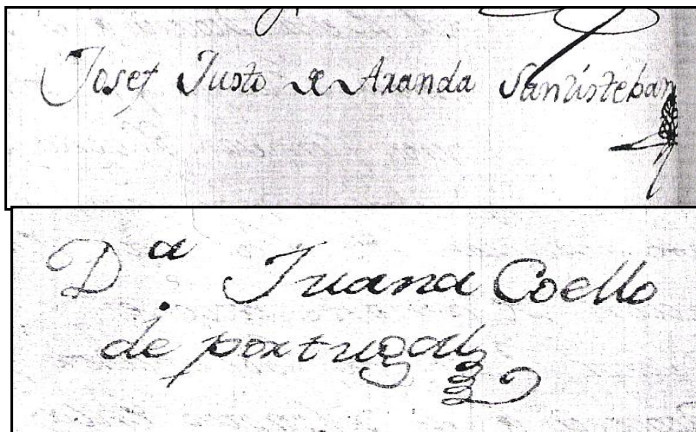 Josef Justo de Aranda Santisteban
D.ª Juana Coello
de portugal